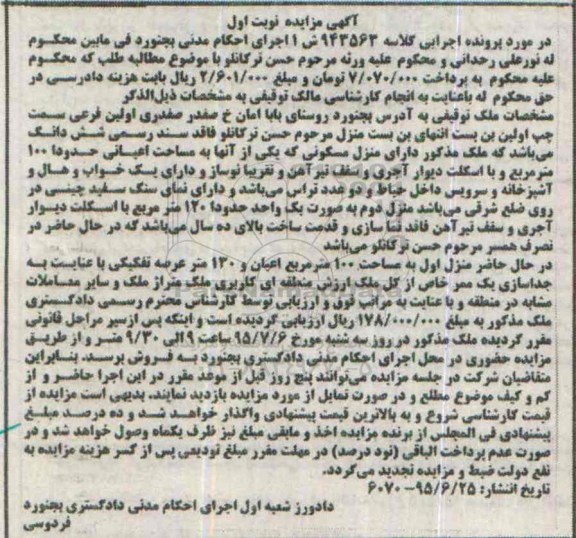 آگهی مزایده نوبت اول
در مورد پرونده اجرایی کلاسه ۹۴۳۵۶۳ ش ۱ اجرای احکام مدنی بجنورد فی مابین محکوم
له نورعلی رحدانی و محکوم علیه ورثه مرحوم حسن ترکانلو با موضوع مطالبه طلب که محکوم
علیه محکوم به پرداخت ۷/۰۷۰/۰۰۰ تومان و مبلغ ۲/۶۰۱/۰۰۰ ریال بابت هزینه دادرسی در
حق محکوم له باعنایت به انجام کارشناسی مالک توقیفی به مشخصات ذیل الذکر
مشخصات ملک توقیفی به آدرس بجنورد روستای بابا امان خ صفدر صفدری اولین فرعی سمت
چپ اولین بن بست انتهای بن بست منزل مرحوم حسن ترکانلو فاقد سند رسمی شش دانگ
میباشد که ملک مذکور دارای منزل مسکونی که یکی از آنها به مساحت اعیانی حدودا ۱۰۰
مترمربع و با اسکلت دیوار آجری وسقف تیر آهن و تقریبا نوساز و دارای یک خواب و هال و
آشپزخانه و سرویس داخل حیاط و دو عدد تراس میباشد و دارای نمای سنگ سفید چینی در
روی ضلع شرقی می باشد منزل دوم به صورت یک واحد حدودا ۱۲۰ متر مربع با اسکلت دیوار
آجری و سقف تیرآهن فاقد نما سازی و قدمت ساخت بالای ده سال میباشد که در حال حاضر در
تصرف همسر مرحوم حسن ترکانلو میباشد
در حال حاضر منزل اول به مساحت ۱۰۰ مترمربع اعیان و ۱۳۰ متر عرصه تفکیکی با عنایت به
جداسازی یک ممر خاص از کل ملک ارزش منطقه ای کاربری ملک متراژ ملک و سایر معاملات
مشابه در منطقه و با عنایت به مراتب فوق و ارزیابی توسط کارشناس محترم رسمی دادگستری
ملک مذکور به مبلغ ۱۷۸/۰۰۰/۰۰۰ ریال ارزیابی گردیده است و اینکه پس ازسیر مراحل قانونی
مقرر گردیده ملک مذکور در روز سه شنبه مورخ ۹۵/۷/۶ ساعت ۹ الی ۹/۳۰ متر و از طریق
مزایده حضوری در محل اجرای احکام مدنی دادگستری بجنورد به فروش برسد. بنابراین
متقاضیان شرکت در جلسه مزایده می توانند پنج روز قبل از موعد مقرر در این اجرا حاضر و از
کم و کیف موضوع مطلع و در صورت تمایل از مورد مزایده بازدید نمایند. بدیهی است مزایده از
قیمت کارشناسی شروع و به بالاترین قیمت پیشنهادی واگذار خواهد شد و ده درصد مبلغ
پیشنهادی فی المجلس از برنده مزایده اخذ و مابقی مبلغ نیز ظرف یکماه وصول خواهد شد و در
صورت عدم پرداخت الباقی (نود درصد) در مهلت مقرر مبلغ تودیعی پس از کسر هزینه مزایده به
نفع دولت ضبط و مزایده تجدید می گردد.
تاریخ انتشار: ۹۵/۶/۲۵- ۶۰۷۰
دادورز شعبه اول اجرای احکام مدنی دادگستری بجنورد
فردوسی